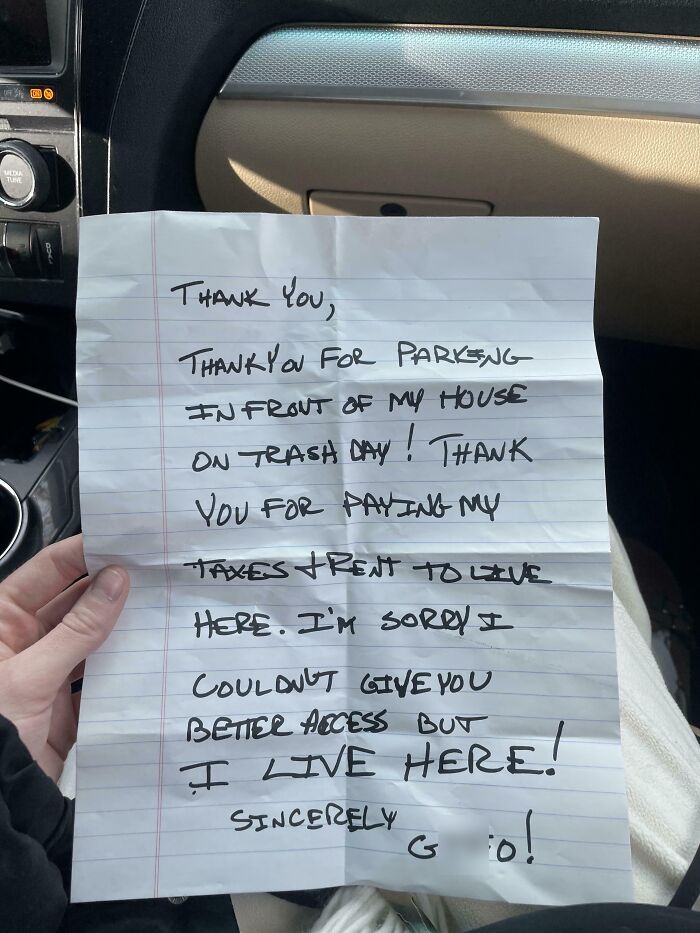 MEDIA
TUNE
THANK YOU,
THANK YOU FOR PARKING
IN FRONT OF MY HOUSE
ON TRASH DAY! THANK
YOU FOR PAYING MY
TAXES & RENT TO LIVE
HERE. I'M SORRY I
COULDN'T GIVE YOU
BETTER ACCESS BUT
I LIVE HERE!
SINCERELY
G O!